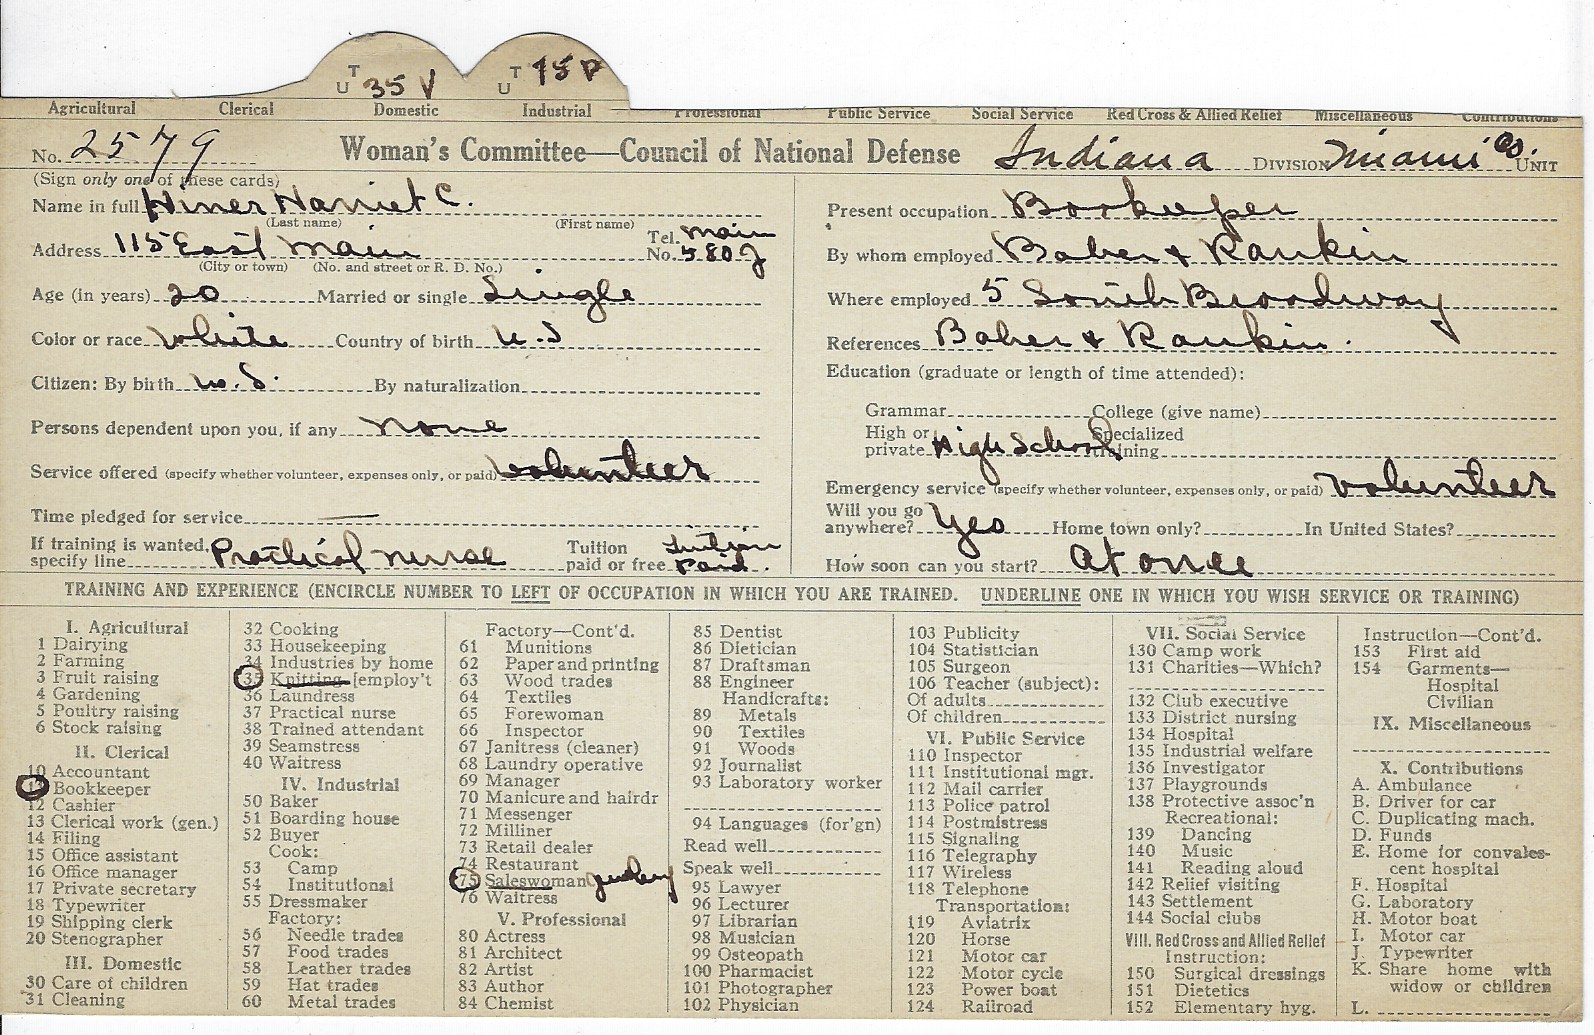 T U 35 V T U 75 P
Agricultural Clerical Domestic Industrial Professional Public Service Social Service Red Cross & Allied Relief Miscellaneous Contributions
No. 2579 Woman's Committee—Council of National Defense Indiana DIVISION Miami Co. UNIT
(Sign only one of these cards)
Name in full Hiner Harriet C.
(Last name) (First name)
Address 115 East Main Tel. No. Main 580J
(City or town) (No. and street or R. D. No.)
Age (in years) 20 Married or single Single
Color or race White Country of birth U.S
Citizen: By birth U.S. By naturalization
Persons dependent upon you, if any none
Service offered (specify whether volunteer, expenses only, or paid) volunteer
Time pledged for service —
If training is wanted, specify line Practical nurse Tuition paid or free Tuition Paid.
Present occupation Bookeeper
By whom employed Baber & Rankin
Where employed 5 South Broadway
References Baber & Rankin.
Education (graduate or length of time attended):
Grammar College (give name)
High or private High School Specialized training
Emergency service (specify whether volunteer, expenses only, or paid) volunteer
Will you go anywhere? Yes Home town only? In United States?
How soon can you start? At once
TRAINING AND EXPERIENCE (ENCIRCLE NUMBER TO LEFT OF OCCUPATION IN WHICH YOU ARE TRAINED. UNDERLINE ONE IN WHICH YOU WISH SERVICE OR TRAINING)
I. Agricultural
1 Dairying
2 Farming
3 Fruit raising
4 Gardening
5 Poultry raising
6 Stock raising
II. Clerical
10 Accountant
11 Bookkeeper
12 Cashier
13 Clerical work (gen.)
14 Filing
15 Office assistant
16 Office manager
17 Private secretary
18 Typewriter
19 Shipping clerk
20 Stenographer
III. Domestic
30 Care of children
31 Cleaning
32 Cooking
33 Housekeeping
34 Industries by home
35 Knitting [employ't
36 Laundress
37 Practical nurse
38 Trained attendant
39 Seamstress
40 Waitress
IV. Industrial
50 Baker
51 Boarding house
52 Buyer
Cook:
53 Camp
54 Institutional
55 Dressmaker
Factory:
56 Needle trades
57 Food trades
58 Leather trades
59 Hat trades
60 Metal trades
Factory—Cont'd.
61 Munitions
62 Paper and printing
63 Wood trades
64 Textiles
65 Forewoman
66 Inspector
67 Janitress (cleaner)
68 Laundry operative
69 Manager
70 Manicure and hairdr
71 Messenger
72 Milliner
73 Retail dealer
74 Restaurant
75 Saleswoman Jewlery
76 Waitress
V. Professional
80 Actress
81 Architect
82 Artist
83 Author
84 Chemist
85 Dentist
86 Dietician
87 Draftsman
88 Engineer
Handicrafts:
89 Metals
90 Textiles
91 Woods
92 Journalist
93 Laboratory worker
94 Languages (for'gn)
Read well
Speak well
95 Lawyer
96 Lecturer
97 Librarian
98 Musician
99 Osteopath
100 Pharmacist
101 Photographer
102 Physician
103 Publicity
104 Statistician
105 Surgeon
106 Teacher (subject):
Of adults
Of children
VI. Public Service
110 Inspector
111 Institutional mgr.
112 Mail carrier
113 Police patrol
114 Postmistress
115 Signaling
116 Telegraphy
117 Wireless
118 Telephone
Transportation:
119 Aviatrix
120 Horse
121 Motor car
122 Motor cycle
123 Power boat
124 Railroad
VII. Social Service
130 Camp work
131 Charities—Which?
132 Club executive
133 District nursing
134 Hospital
135 Industrial welfare
136 Investigator
137 Playgrounds
138 Protective assoc'n
Recreational:
139 Dancing
140 Music
141 Reading aloud
142 Relief visiting
143 Settlement
144 Social clubs
VIII. Red Cross and Allied Relief
Instruction:
150 Surgical dressings
151 Dietetics
152 Elementary hyg.
Instruction—Cont'd.
153 First aid
154 Garments—
Hospital
Civilian
IX. Miscellaneous
X. Contributions
A. Ambulance
B. Driver for car
C. Duplicating mach.
D. Funds
E. Home for convales-
cent hospital
F. Hospital
G. Laboratory
H. Motor boat
I. Motor car
J. Typewriter
K. Share home with
widow or children
L.